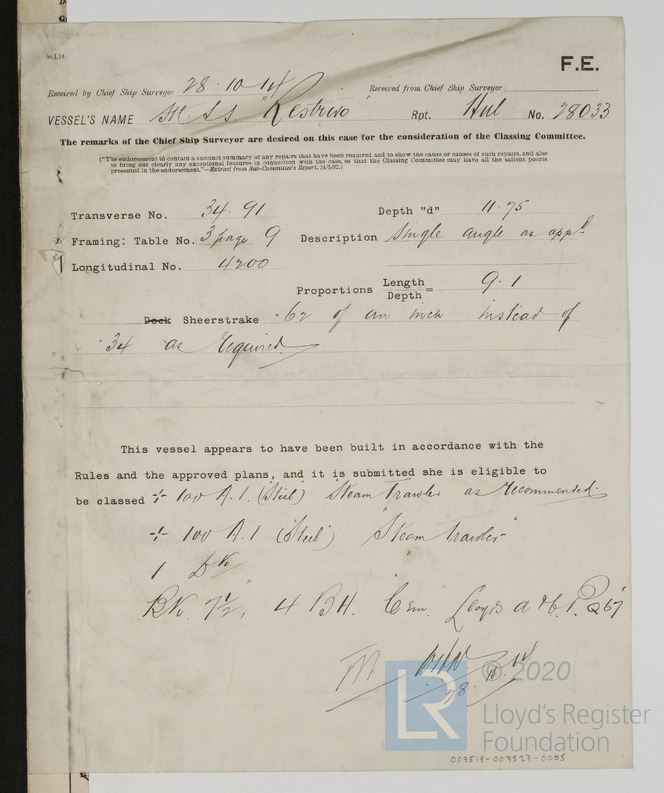 5c,1,14.
F.E.
Received by Chief Ship Surveyor 28·10·14 Received from Chief Ship Surveyor
VESSEL'S NAME St. S.S. "Restrivo" Rpt. Hul No. 28033
The remarks of the Chief Ship Surveyor are desired on this case for the consideration of the Classing Committee.
("The endorsement to contain a succinct summary of any repairs that have been required and to show the cause or causes of such repairs, and also
to bring out clearly any exceptional features in connection with the case, so that the Classing Committee may have all the salient points
presented in the endorsement."—Extract from Sub-Committee's Report, 24/5/02.)
Transverse No. 34·91 Depth "d" 11·75
Framing: Table No. 3 page 9 Description single angle as appd
Longitudinal No. 4200
Proportions Length/Depth = 9·1
Deck Sheerstrake ·62 of an inch instead of
·34 as required
This vessel appears to have been built in accordance with the
Rules and the approved plans, and it is submitted she is eligible to
be classed + 100 A.1. (Steel) Steam Trawler as recommended
+ 100 A.1 (Steel) "Steam Trawler"
1 Dk
BK 7½", 4 BH. Cem. Lloyds A & C.P.
28.10.14
© 2020
LR
Lloyd's Register
Foundation
003518-003527-0005